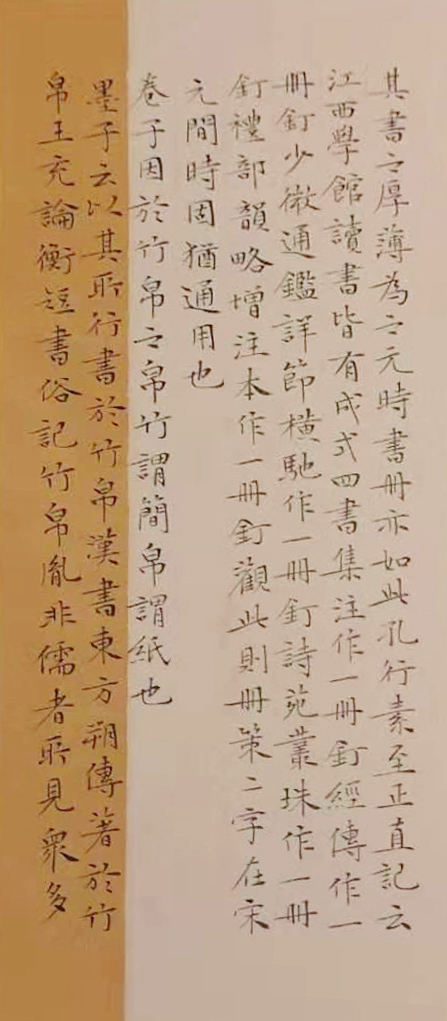 其書之厚薄為之元時書冊亦如此孔行素至正直記云
江西學館讀書皆有成式四書集注作一冊釘經傳作一
冊釘少微通鑑詳節橫馳作一冊釘詩苑叢珠作一冊
釘禮部韻略增注本作一冊釘觀此則冊策二字在宋
元間時固猶通用也
卷子因於竹帛之帛竹謂簡帛謂紙也
墨子云以其所行書於竹帛漢書東方朔傳著於竹
帛王充論衡短書俗記竹帛胤非儒者所見眾多